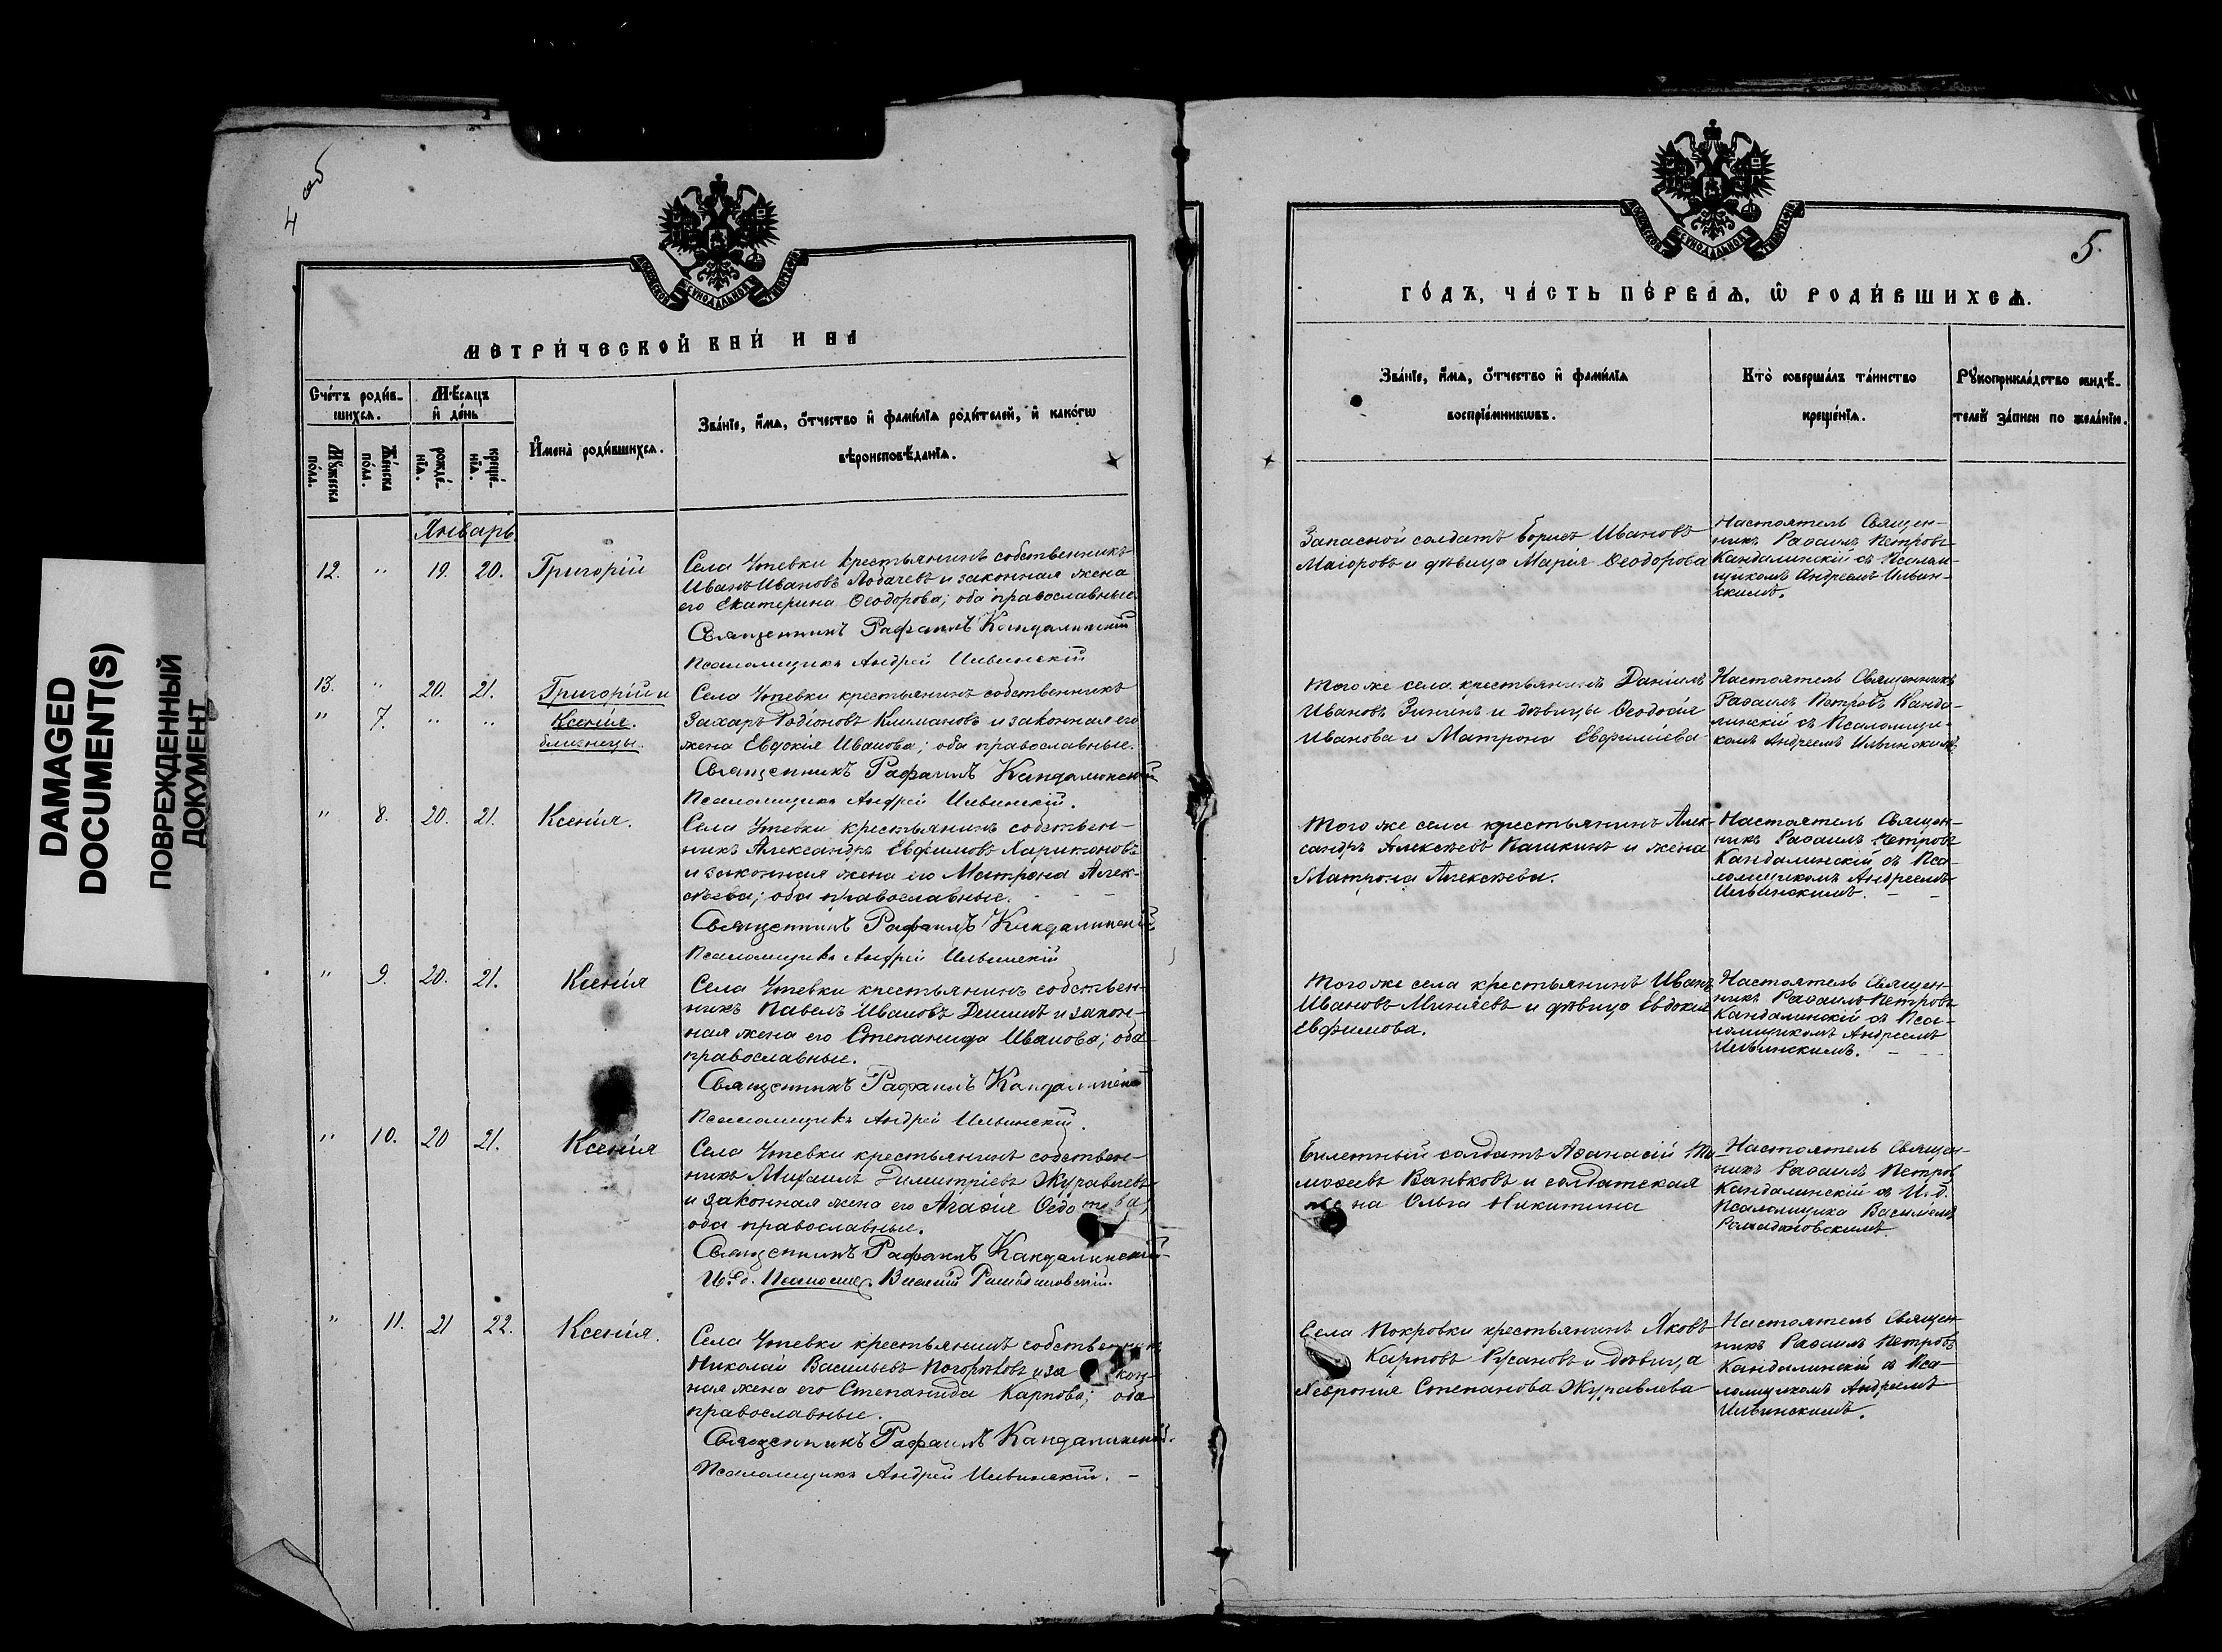 DAMAGED
DOCUMENT(S)
ПОВРЕЖДЕННЫЙ
ДОКУМЕНТ
4 об
МОСКОВСКОЙ СѴНОДАЛЬНОЙ ТИПОГРАФІИ
МЕТРИ́ЧЕСКОЙ КНИ́ И НА
Сче́тъ роди́в-
шихсѧ.
Мꙋ́жеска по́ла.
Же́нска по́ла.
Мѣ́сѧцъ
и҆ де́нь
рожде́-
нїѧ.
креще́-
нїѧ.
И҆мена̀ роди́вшихсѧ.
Зва́нїе, и҆́мѧ, ѻ҆́тчество и҆ фами́лїѧ роди́телей, и҆ како́гѡ
вѣроисповѣ́данїѧ.
Январь
12. " 19. 20. Григорій
Села Утевки крестьянинъ собственникъ
Иванъ Ивановъ Лобачевъ и законная жена
его Екатерина Ѳеодорова; оба православные.
Священникъ Рафаилъ Кандалинскій
Псаломщикъ Андрей Ильинскій
13. " 20. 21. Григорій и
" 7. " " Ксенія.
близнецы.
Села Утевки крестьянинъ собственникъ
Захаръ Родіоновъ Климановъ и законная его
жена Евдокія Иванова; оба православные.
Священникъ Рафаилъ Кандалинскій
Псаломщикъ Андрей Ильинскій.
" 8. 20. 21. Ксенія.
Села Утевки крестьянинъ собствен-
никъ Александръ Евфимовъ Харитоновъ
и законная жена его Матрона Алек-
сѣева; оба православные.
Священникъ Рафаилъ Кандалинскій
Псаломщикъ Андрей Ильинскій
" 9. 20. 21. Ксенія
Села Утевки крестьянинъ собствен-
никъ Павелъ Ивановъ и закон-
ная жена его Степанида Иванова; оба
православные.
Священникъ Рафаилъ Кандалинскій
Псаломщикъ Андрей Ильинскій.
" 10. 20 21. Ксенія
Села Утевки крестьянинъ собствен-
никъ Михаилъ Димитріевъ Журавлевъ
и законная жена его Агаѳія Ѳедотова;
оба православные.
Священникъ Рафаилъ Кандалинскій
И. д. Псаломщ. Василій
" 11. 21 22. Ксенія.
Села Утевки крестьянинъ собственникъ
Николай Васильевъ и закон-
ная жена его Степанида Карпова; оба
православные.
Священникъ Рафаилъ Кандалинскій.
Псаломщикъ Андрей Ильинскій. –
5.
МОСКОВСКОЙ СѴНОДАЛЬНОЙ ТИПОГРАФІИ
ГО́ДЪ, ЧА́СТЬ ПЕ́РВАѦ, Ѽ РОДИ́ВШИХСѦ.
Зва́нїе, и҆́мѧ, ѻ҆́тчество и҆ фами́лїѧ
воспрїе́мникѡвъ.
Кто̀ соверша́лъ та́инство
креще́нїѧ.
Рꙋкоприкла́дство свидѣ́-
телей за́писи по жела́нїю.
Запасной солдатъ Борисъ Ивановъ
Маіоровъ и дѣвица Марія Ѳеодорова
Настоятель Священ-
никъ Рафаилъ Петровъ
Кандалинскій съ Псалом-
щикомъ Андреемъ Ильин-
скимъ.
Того же села крестьянинъ Даніилъ
Ивановъ Зининъ и дѣвицы Ѳеодосія
Иванова и Матрона Евфиміева
Настоятель Священникъ
Рафаилъ Петровъ Канда-
линскій съ Псаломщи-
комъ Андреемъ Ильинскимъ
Того же села крестьянинъ Алек-
сандръ Алексѣевъ Пашкинъ и жена
Матрона Алексѣева.
Настоятель Священ-
никъ Рафаилъ Петровъ
Кандалинскій съ Пса-
ломщикомъ Андреемъ
Ильинскимъ. –
Того же села крестьянинъ Иванъ
Ивановъ Миняевъ и дѣвица Евдокія
Евфимова.
Настоятель Священ-
никъ Рафаилъ Петровъ
Кандалинскій съ Пса-
ломщикомъ Андреемъ
Ильинскимъ. –
Билетный солдатъ Аѳанасій Ти-
моѳеевъ Ваньковъ и солдатская
жена Ольга Никитина
Настоятель Священ-
никъ Рафаилъ Петров
Кандалинскій съ И. д.
Псаломщика Василіемъ
Села Покровки крестьянинъ Яковъ
Карповъ Русановъ и дѣвица
Хеврония Степанова Журавлева
Настоятель Священ-
никъ Рафаилъ Петровъ
Кандалинскій съ Пса-
ломщикомъ Андреемъ
Ильинскимъ.